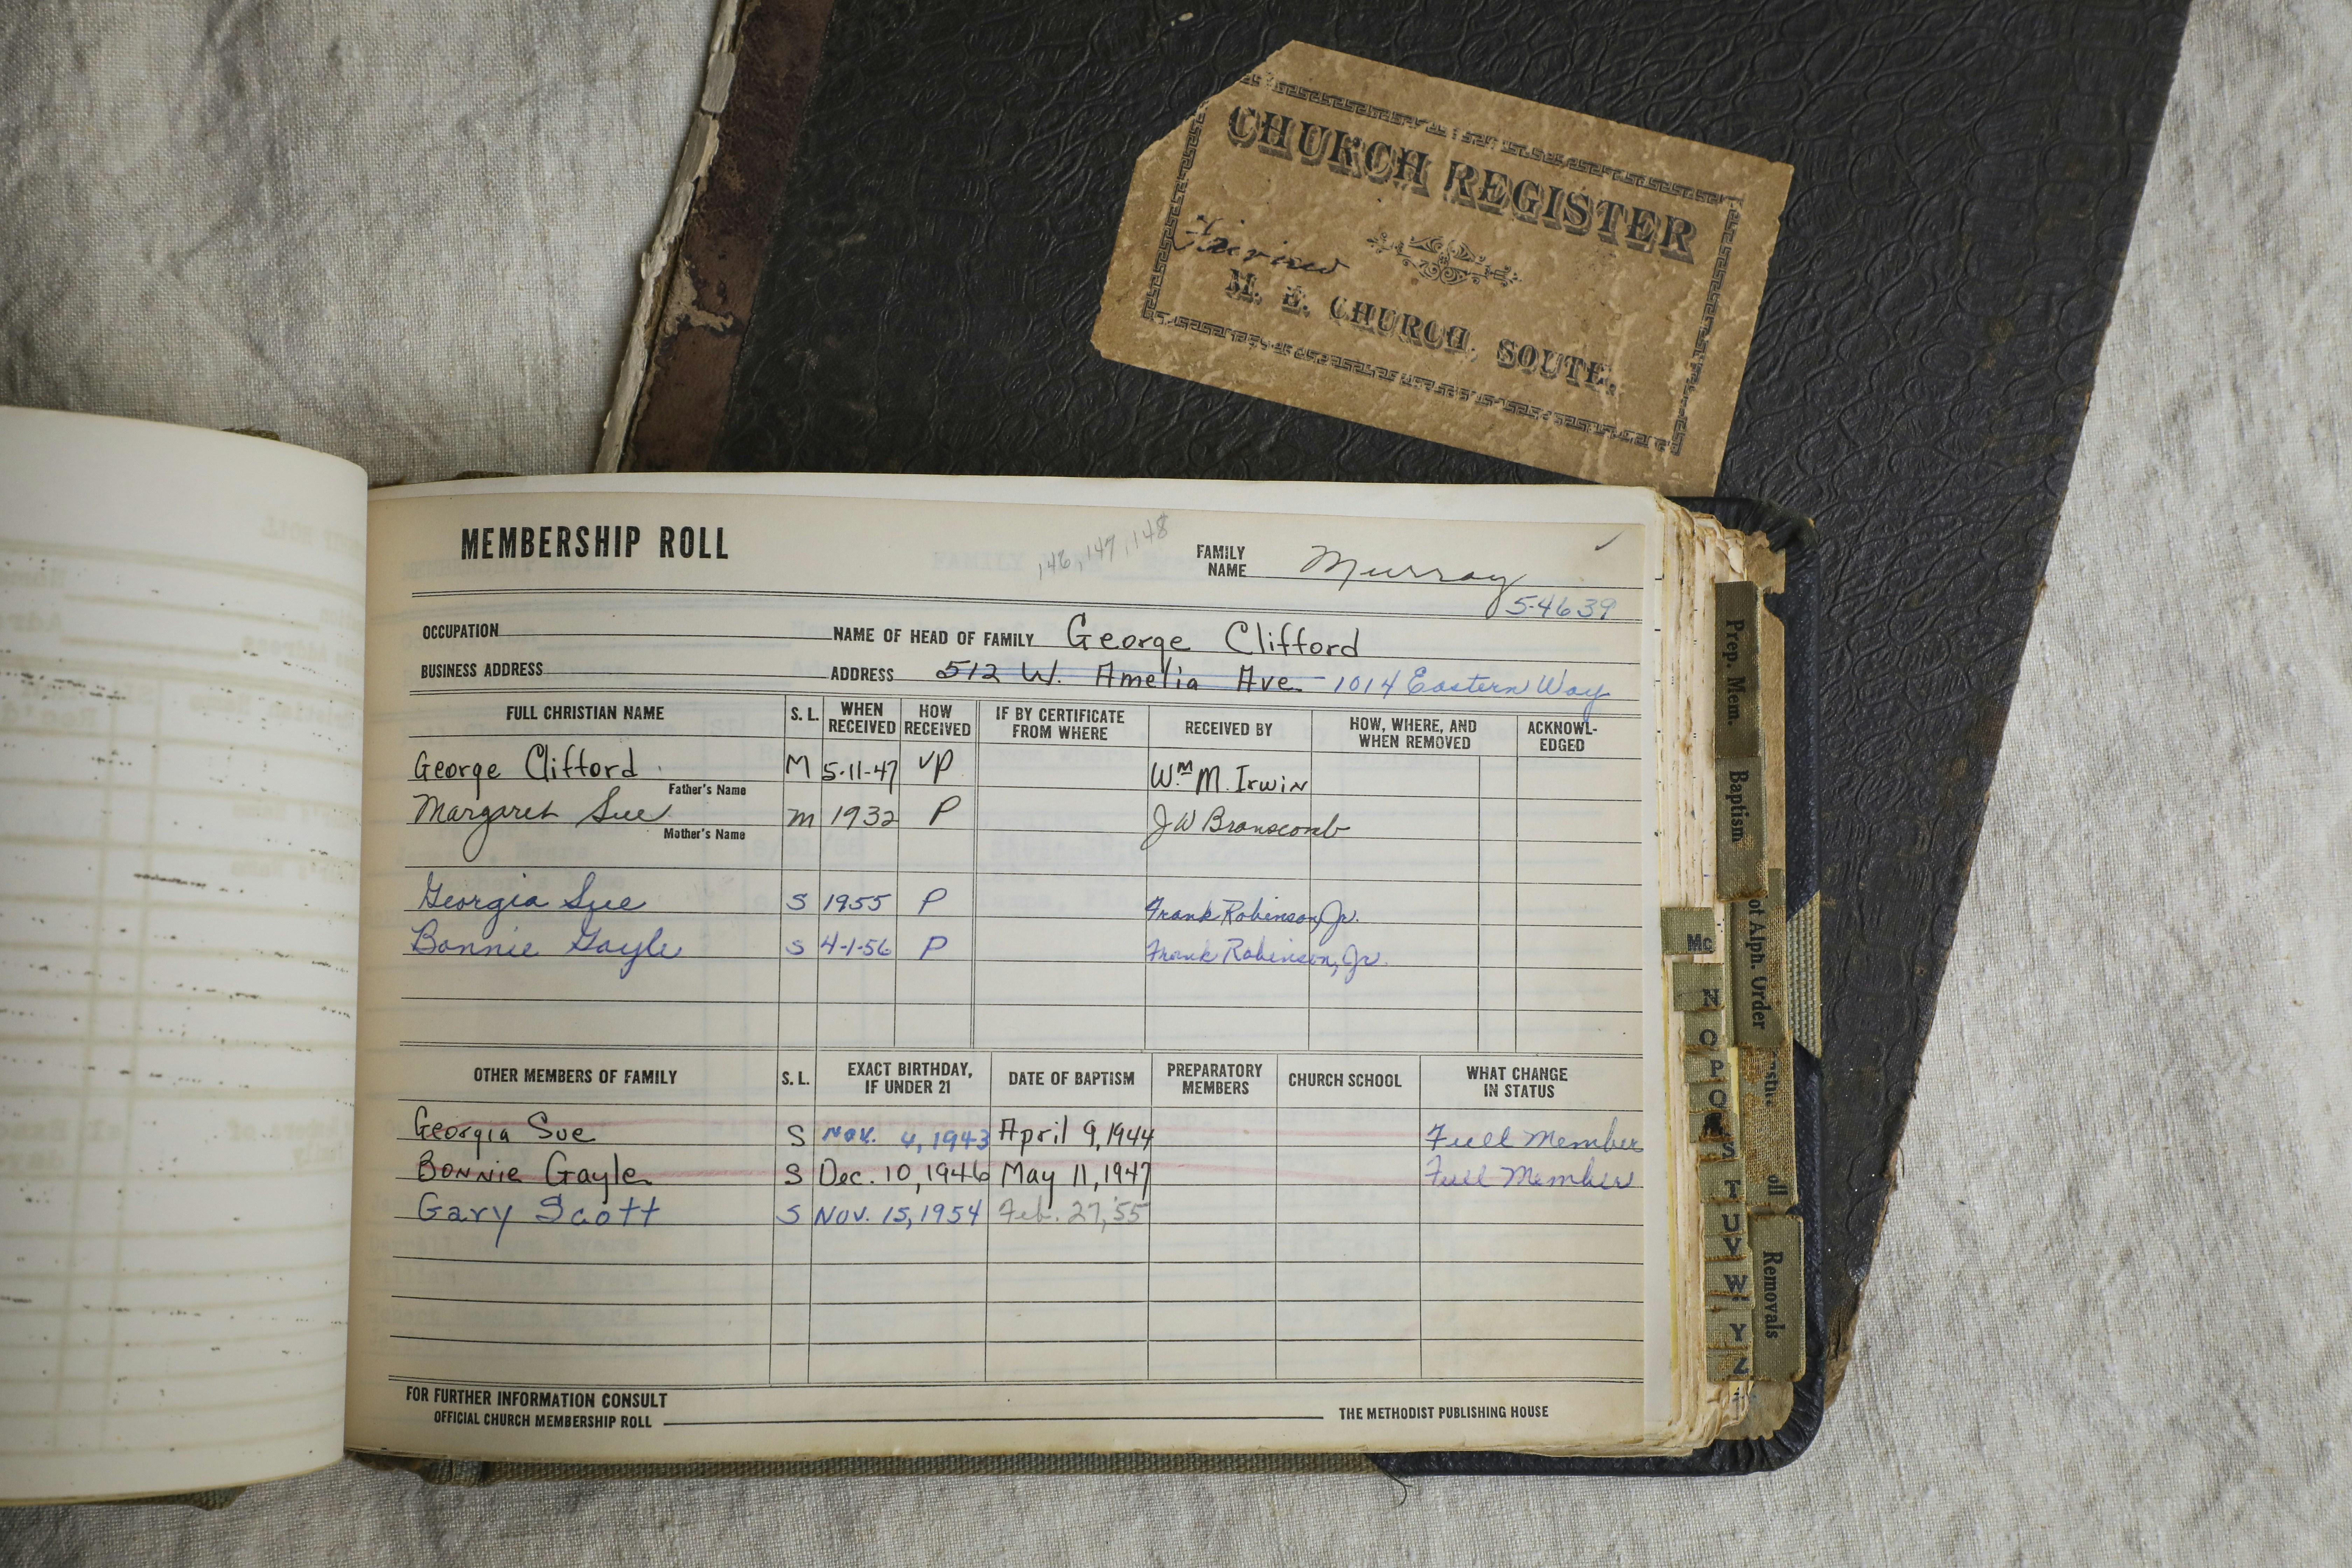 CHURCH REGISTER
M. E. CHURCH, SOUTH,
MEMBERSHIP ROLL
146, 147, 148
FAMILY NAME Murray
5-4639
OCCUPATION NAME OF HEAD OF FAMILY George Clifford
BUSINESS ADDRESS ADDRESS 512 W. Amelia Ave. 1014 Eastern Way
FULL CHRISTIAN NAME S. L. WHEN RECEIVED HOW RECEIVED IF BY CERTIFICATE FROM WHERE RECEIVED BY HOW, WHERE, AND WHEN REMOVED ACKNOWL-EDGED
George Clifford M 5-11-47 VP Wm M. Irwin
Father's Name
Margaret Sue M 1932 P J W Branscomb
Mother's Name
Georgia Sue S 1955 P Frank Robinson, Jr.
Bonnie Gayle S 4-1-56 P Frank Robinson, Jr.
OTHER MEMBERS OF FAMILY S. L. EXACT BIRTHDAY, IF UNDER 21 DATE OF BAPTISM PREPARATORY MEMBERS CHURCH SCHOOL WHAT CHANGE IN STATUS
Georgia Sue S Nov. 4, 1943 April 9, 1944 Full Member
Bonnie Gayle S Dec. 10, 1946 May 11, 1947 Full Member
Gary Scott S Nov. 15, 1954 Feb. 27, '55
FOR FURTHER INFORMATION CONSULT
OFFICIAL CHURCH MEMBERSHIP ROLL THE METHODIST PUBLISHING HOUSE
Prep. Mem.
Baptism
ot Alph. Order
Removals
Mc
N
O
P
Q
S
T
U
V
W
Y
Z